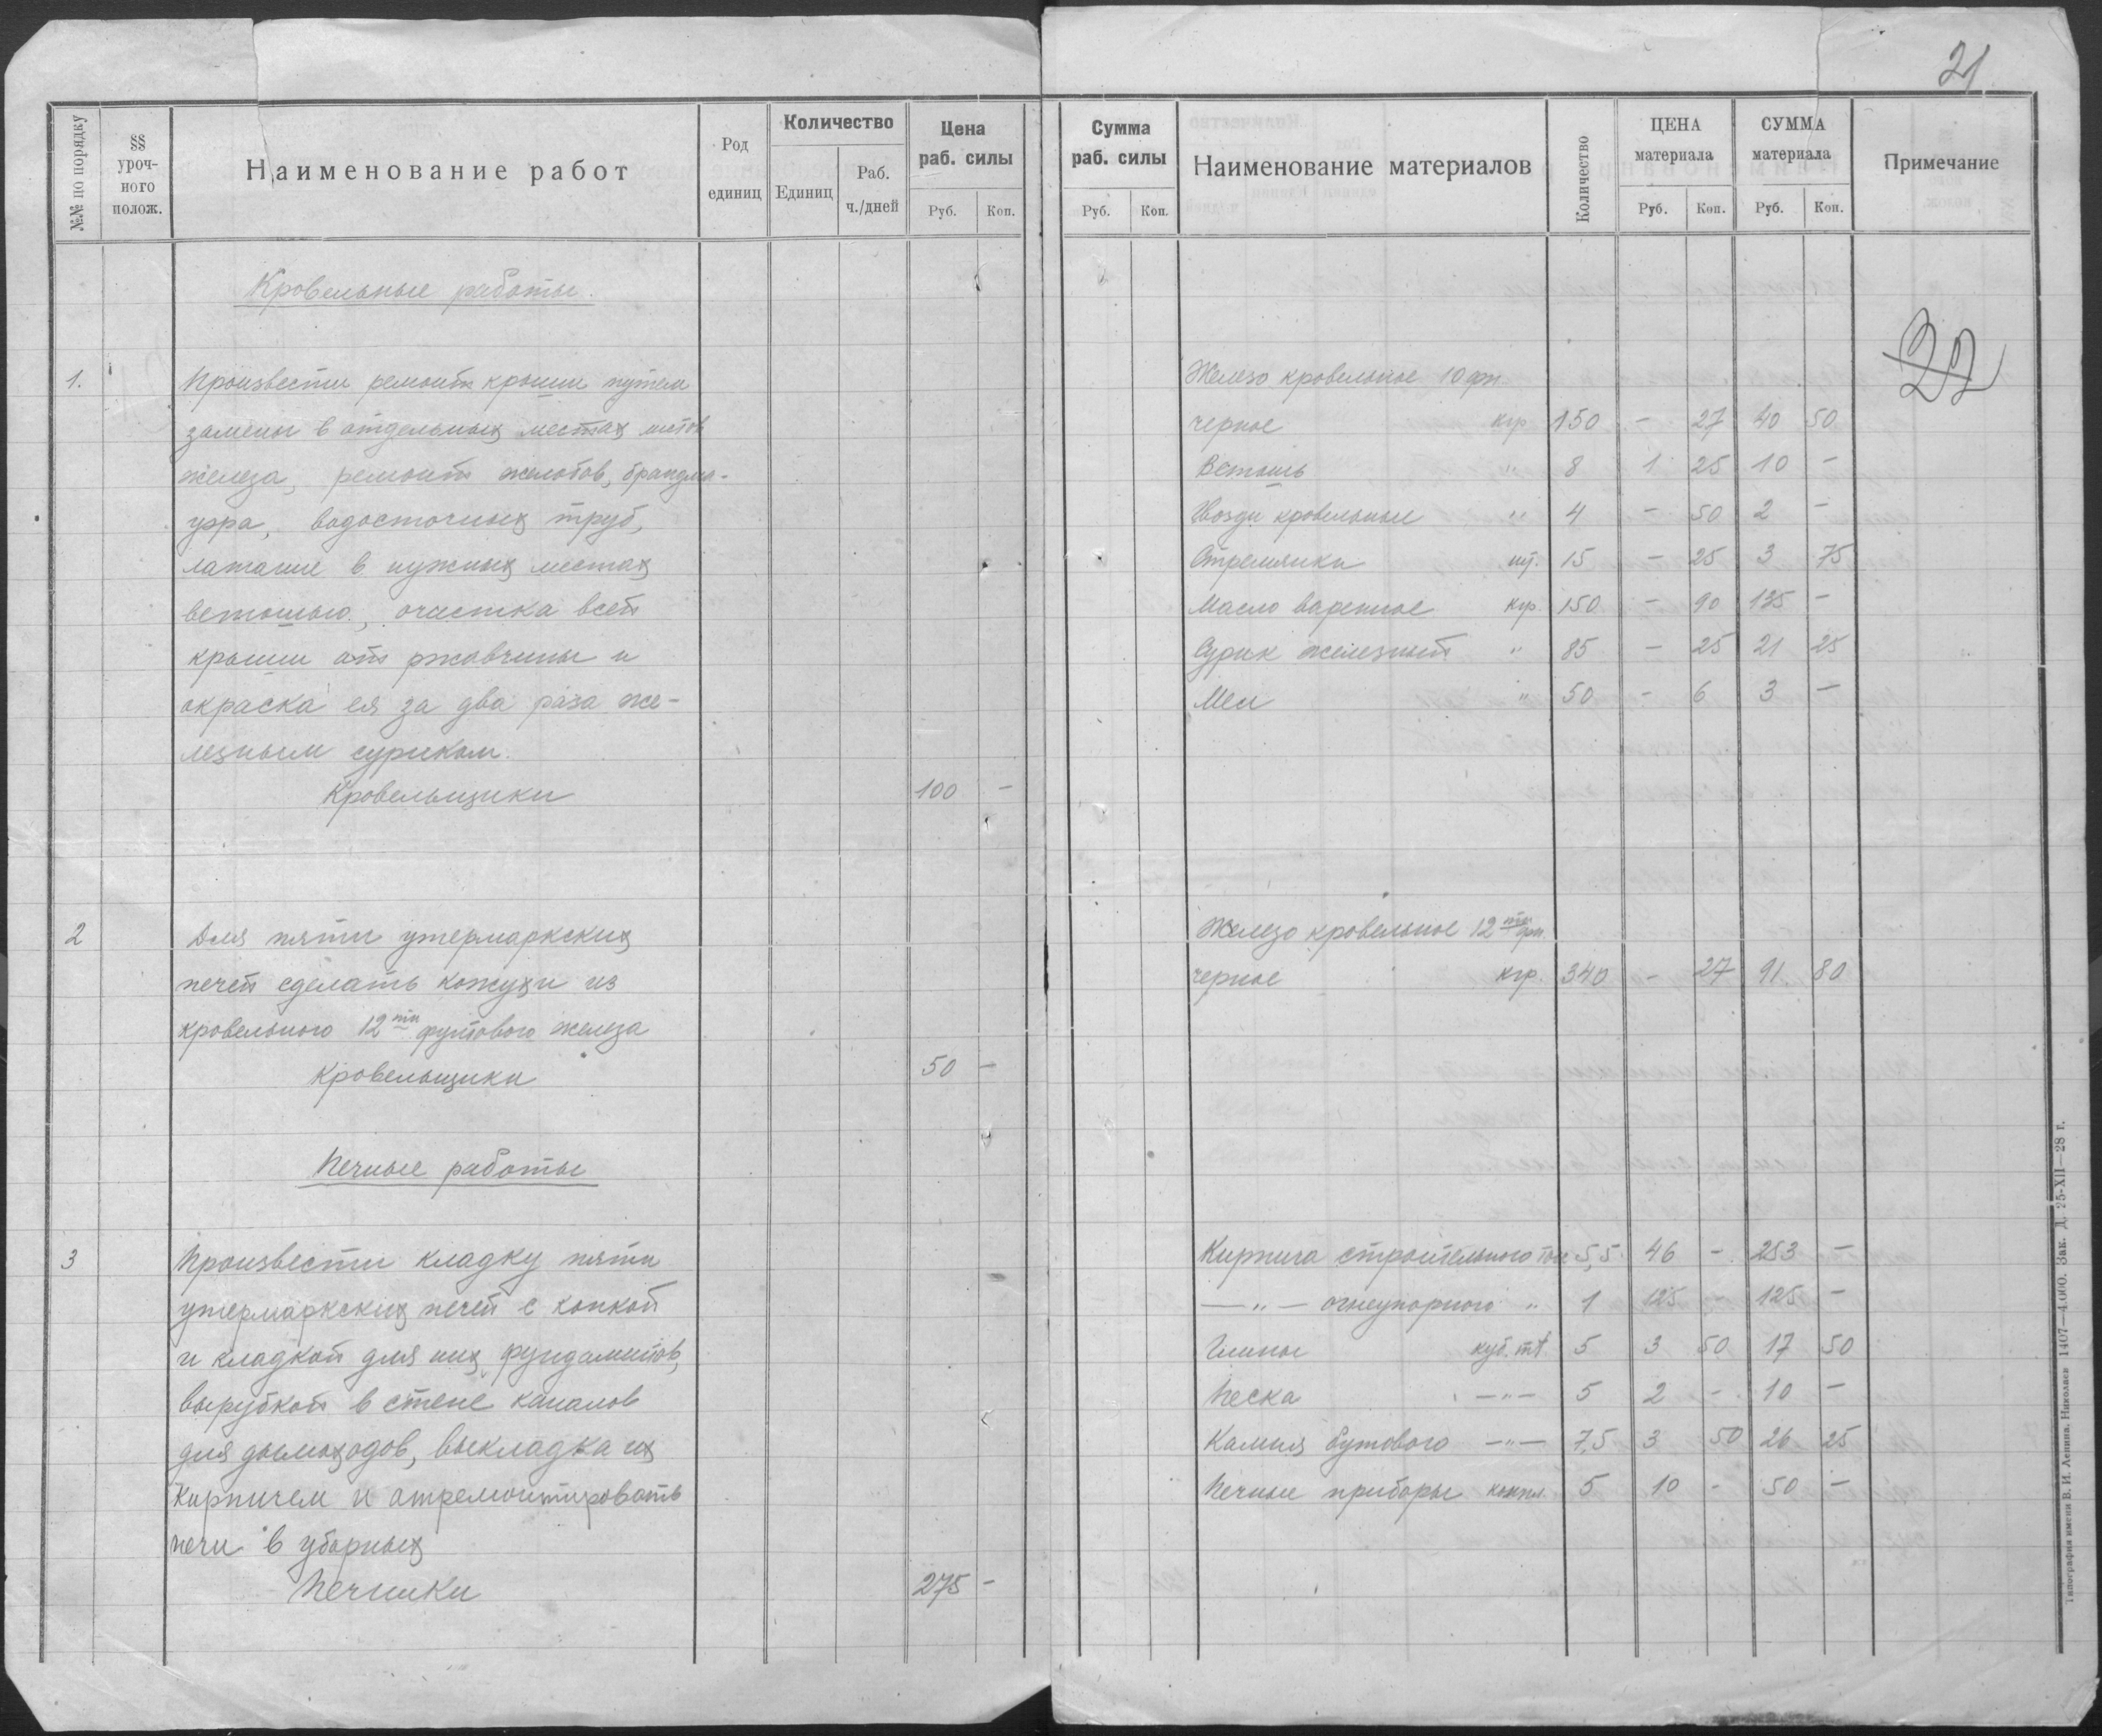 21
№№ по порядку
§§ уроч-ного полож.
Наименование работ
Род единиц
Количество
Единиц
Раб. ч./дней
Цена раб. силы
Руб. Коп.
Сумма раб. силы
Руб. Коп.
Наименование материалов
Количество
ЦЕНА материала
Руб. Коп.
СУММА материала
Руб. Коп.
Примечание
22
Кровельные работы.
1. Произвести ремонт крыши путем
замены в отдельных местах листов
железа, ремонт желобов, брандма-
уэра, водосточных труб,
латание в нужных местах
ветошью, очистка всей
крыши от ржавчины и
окраска ея за два раза же-
лезным суриком.
Кровельщики 100 -
2 Для пяти утермаркских
печей сделать кожухи из
кровельного 12ти футового железа
Кровельщики 50 -
Печные работы
3 Произвести кладку пяти
утермаркских печей с копкой
и кладкой для них фундаментов,
вырубкой в стене каналов
для дымоходов, выкладка их
кирпичем и отремонтировать
печи в уборных
Печники 275 -
Железо кровельное 10 фн.
черное кгр 150 - 27 40 50
Ветошь " 8 1 25 10 -
Гвозди кровельные " 4 - 50 2 -
Стремянки шт. 15 - 25 3 75
Масло варенное кгр. 150 - 90 135 -
Сурик железный " 85 - 25 21 25
Мел " 50 - 6 3 -
Железо кровельное 12ти фн.
черное кгр. 340 - 27 91 80
Кирпича строительного тыс 5,5 46 - 253 -
— " — огнеупорного " 1 125 - 125 -
Глины куб. mt. 5 3 50 17 50
Песка — " — 5 2 - 10 -
Камня бутового — " — 7,5 3 50 26 25
Печные приборы компл. 5 10 - 50 -
Типография имени В. И. Ленина. Николаев 1407—4.000. Зак. Д. 25-XII—28 г.